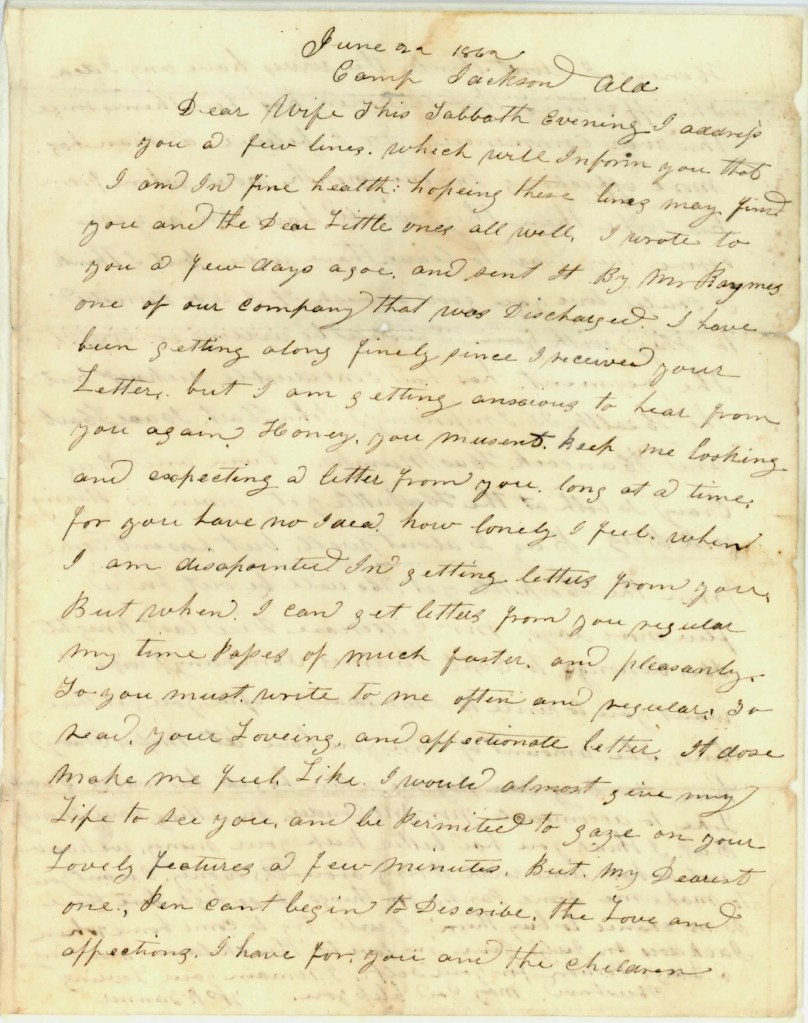 June 22 1862
Camp Jackson Ala
Dear Wife This Sabbath Evening I address
you a few lines. which will Inform you that
I am In fine health: hopeing these lines may find
you and the Dear Little ones all well. I wrote to
you a few days agoe. and sent It By Mr
one of our company that was Discharged. I have
been getting along finely since I received your
Letter. but I am getting anxious to hear from
you again. Honey. you musent. keep me looking
and expecting a letter from you. long at a time.
for you have no Idea. how lonely I feel. when
I am disapointed In getting letters from you.
But when. I can get letters from you regular
my time Papes of much faster. and pleasantly.
So you must. write to me often and regular. To
read. your Loveing. and affectionate letter. It dose
make me feel. Like. I would almost give my
Life to see you. and be Permited to gaze on your
Lovely features a few minutes. But. my Dearest
one., Pen cant begin to Describe. the Love and
affections. I have for. you and the children.